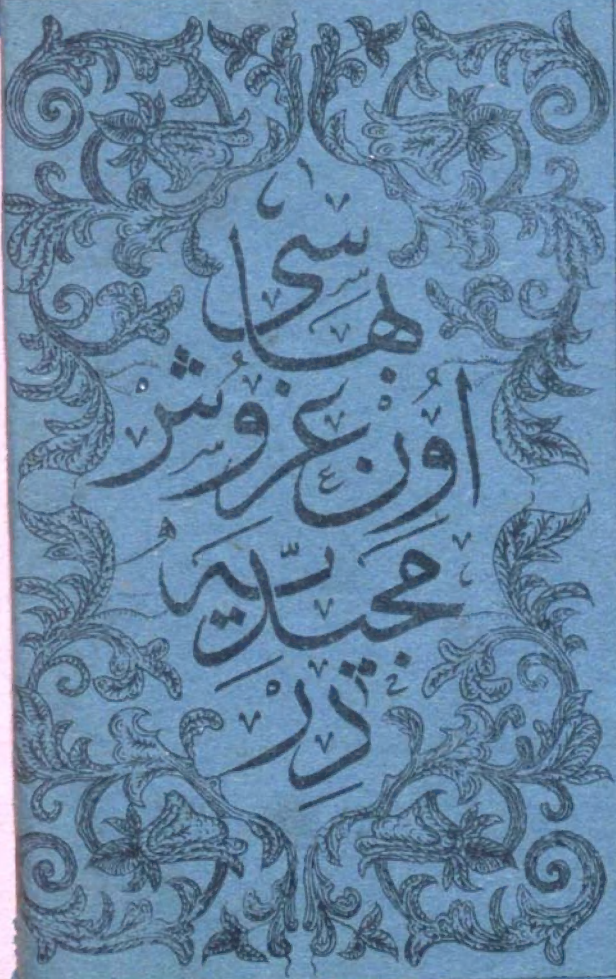 بهاسى
اُونْ غُروُشْ
مَجيديّه
دِرْ